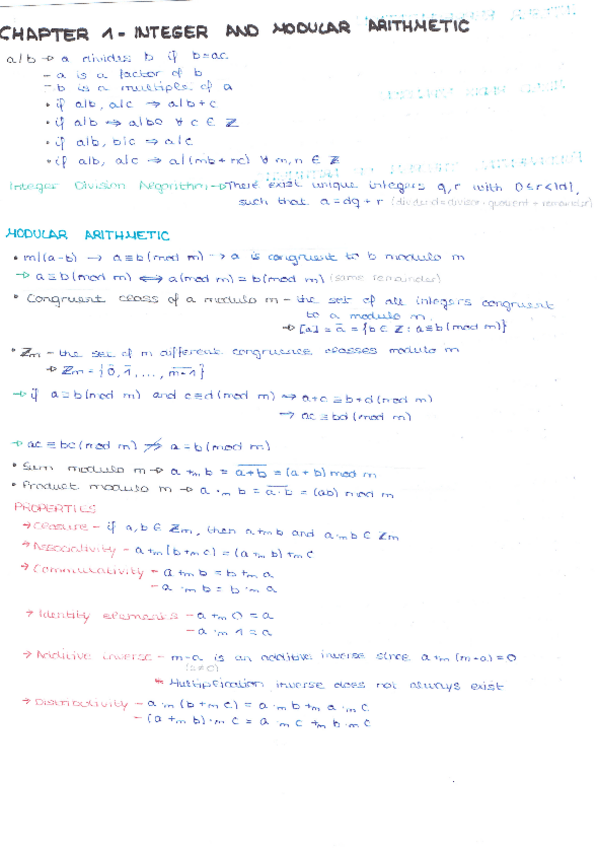 CHAPTER 1 - INTEGER AND MODULAR ARITHMETIC
a/b → a divides b if b=ac
- a is a factor of b
- b is a multiple of a
• if a|b, a|c ⇒ a|b+c
• if a|b ⇒ a|bc ∀ c ∈ Z
• if a|b, b|c ⇒ a|c
• if a|b, a|c ⇒ a|(mb+nc) ∀ m,n ∈ Z
Integer Division Algorithm → There exist unique integers q,r with 0≤r<|d|,
such that a=dq+r (dividend=divisor·quotient+remainder)
MODULAR ARITHMETIC
• m|(a-b) → a≡b(mod m) → a is congruent to b modulo m
→ a≡b(mod m) ⟺ a(mod m)=b(mod m) (same remainder)
• Congruent class of a modulo m - the set of all integers congruent
to a modulo m.
→ [a]=a̅={b∈Z: a≡b(mod m)}
• Zm - the set of m different congruence classes modulo m
→ Zm={0̅,1̅,...,m-1}
→ if a≡b(mod m) and c≡d(mod m) → a+c≡b+d(mod m)
→ ac≡bd(mod m)
→ ac≡bc(mod m) ⇏ a=b(mod m)
• Sum modulo m → a +m b = a+b = (a+b) mod m
• Product modulo m → a ·m b = a·b = (ab) mod m
PROPERTIES
→ Closure - if a,b ∈ Zm, then a+mb and a·mb ∈ Zm
→ Associativity - a+m(b+mc)=(a+mb)+mc
→ Commutativity - a+mb=b+ma
- a·mb=b·ma
→ Identity elements - a+m0=a
- a·m1=a
→ Additive inverse - m-a is an additive inverse since a+m(m-a)=0
(a≠0)
* Multiplication inverse does not always exist
→ Distributivity - a·m(b+mc)=a·mb+ma·mc
- (a+mb)·mc=a·mc+mb·mc